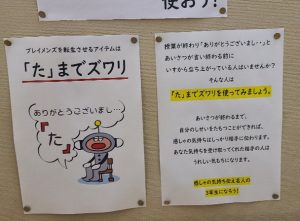 使おう!
ブレイメンズを転生させるアイテムは
「た」までズワリ
ありがとうございまし…
『た』
授業が終わり「ありがとうございまし・・」と
あいさつが言い終わる前に
いすから立ち上がっている人はいませんか?
そんな人は
「た」までズワリを使ってみましょう。
あいさつが終わるまで、
自分のしせいをたもつことができれば、
感しゃの気持ちはしっかり相手に伝わります。
あなた気持ちを受け取ってくれた相手の人は
うれしい気もちになります。
感しゃの気持ち伝える人の
3年生になろう!